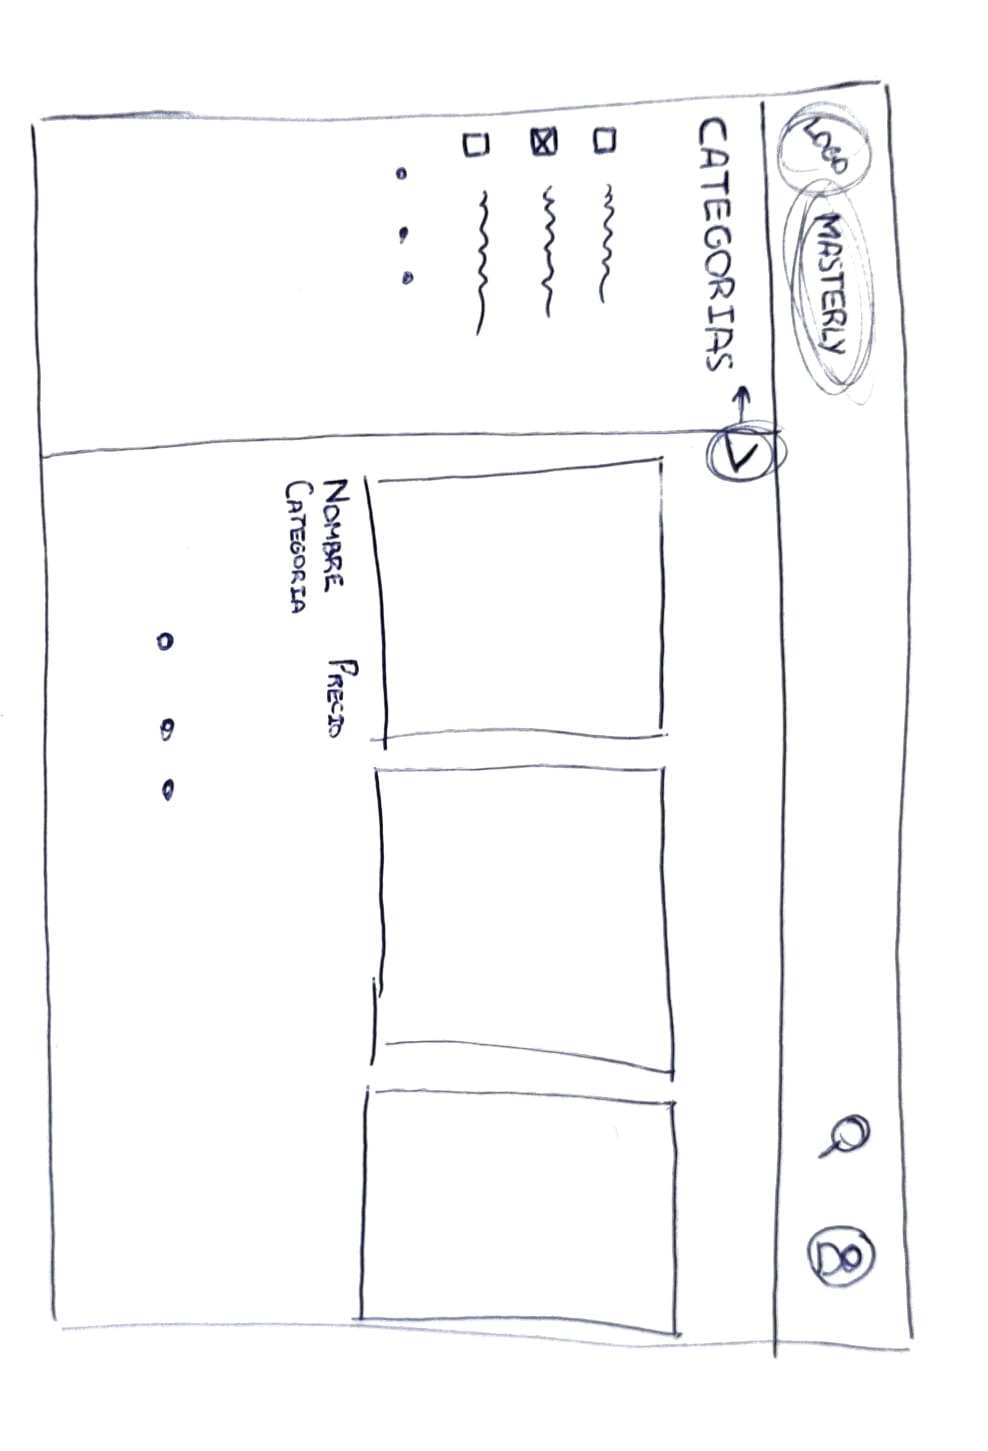 LOGO
MASTERLY
CATEGORIAS
NOMBRE PRECIO
CATEGORIA